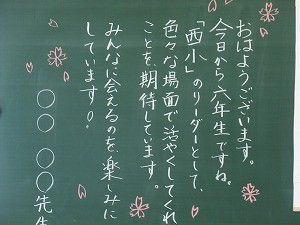 おはようございます。
今日から六年生ですね。
「西小」のリーダーとして、
色々な場面で活やくしてくれ
ことを期待しています。
みんなに会えるのを楽しみに
しています!。
○○ ○○先生